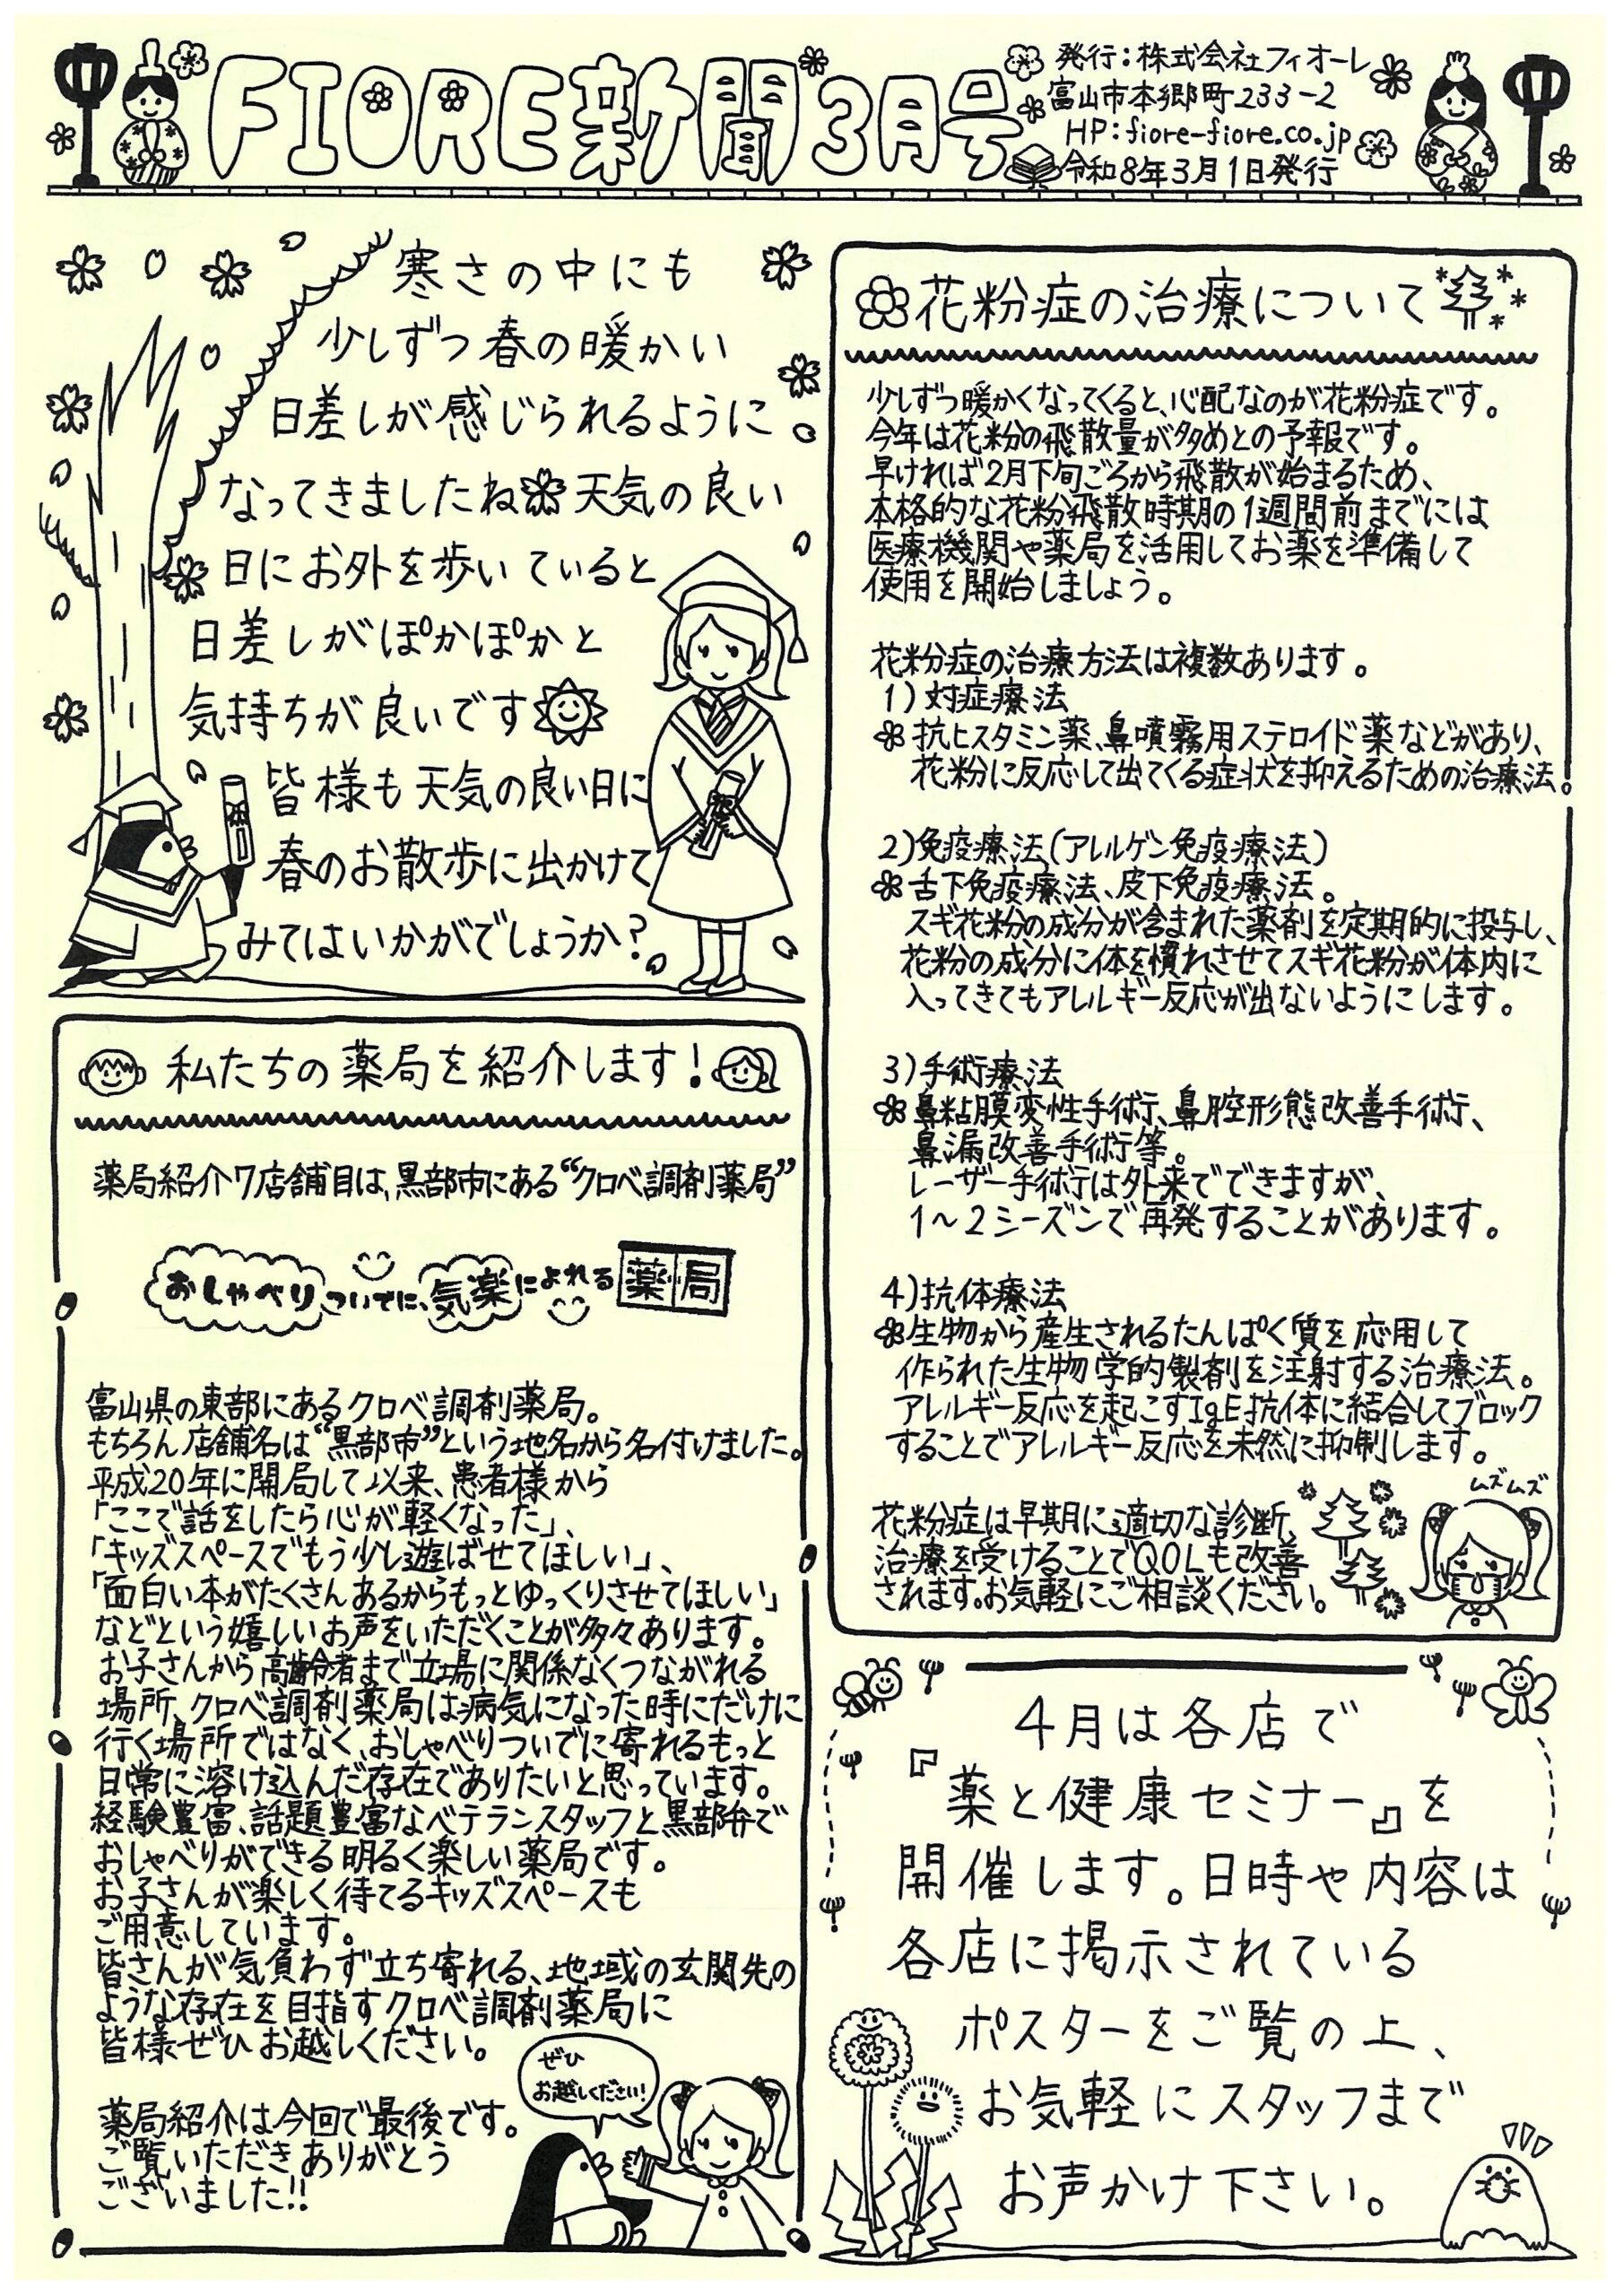 FIORE新聞3月号
発行：株式会社フィオーレ
富山市本郷町233-2
HP：fiore-fiore.co.jp
令和8年3月1日発行
寒さの中にも
少しずつ春の暖かい
日差しが感じられるように
なってきましたね 天気の良い
日にお外を歩いていると
日差しがぽかぽかと
気持ちが良いです
皆様も天気の良い日に
春のお散歩に出かけて
みてはいかがでしょうか？
私たちの薬局を紹介します！
薬局紹介7店舗目は、黒部市にある“クロベ調剤薬局”
おしゃべりついでに、気楽によれる薬局
富山県の東部にあるクロベ調剤薬局。
もちろん店舗名は“黒部市”という地名から名付けました。
平成20年に開局して以来、患者様から
「ここで話をしたら心が軽くなった」、
「キッズスペースでもう少し遊ばせてほしい」、
「面白い本がたくさんあるからもっとゆっくりさせてほしい」
などという嬉しいお声をいただくことが多々あります。
お子さんから高齢者まで立場に関係なくつながれる
場所、クロベ調剤薬局は病気になった時にだけに
行く場所ではなく、おしゃべりついでに寄れるもっと
日常に溶け込んだ存在でありたいと思っています。
経験豊富、話題豊富なベテランスタッフと黒部弁で
おしゃべりができる明るく楽しい薬局です。
お子さんが楽しく待てるキッズスペースも
ご用意しています。
皆さんが気負わず立ち寄れる、地域の玄関先の
ような存在を目指すクロベ調剤薬局に
皆様ぜひお越しください。
薬局紹介は今回で最後です。
ご覧いただきありがとう
ございました!!
ぜひ
お越しください!
花粉症の治療について
少しずつ暖かくなってくると、心配なのが花粉症です。
今年は花粉の飛散量が多めとの予報です。
早ければ2月下旬ごろから飛散が始まるため、
本格的な花粉飛散時期の1週間前までには
医療機関や薬局を活用してお薬を準備して
使用を開始しましょう。
花粉症の治療方法は複数あります。
1)対症療法
抗ヒスタミン薬、鼻噴霧用ステロイド薬などがあり、
花粉に反応して出てくる症状を抑えるための治療法。
2)免疫療法(アレルゲン免疫療法)
舌下免疫療法、皮下免疫療法。
スギ花粉の成分が含まれた薬剤を定期的に投与し、
花粉の成分に体を慣れさせてスギ花粉が体内に
入ってきてもアレルギー反応が出ないようにします。
3)手術療法
鼻粘膜変性手術、鼻腔形態改善手術、
鼻漏改善手術等。
レーザー手術は外来でできますが、
1～2シーズンで再発することがあります。
4)抗体療法
生物から産生されるたんぱく質を応用して
作られた生物学的製剤を注射する治療法。
アレルギー反応を起こすIgE抗体に結合してブロック
することでアレルギー反応を未然に抑制します。
花粉症は早期に適切な診断、
治療を受けることでQOLも改善
されます。お気軽にご相談ください。
ムズムズ
4月は各店で
『薬と健康セミナー』を
開催します。日時や内容は
各店に掲示されている
ポスターをご覧の上、
お気軽にスタッフまで
お声かけ下さい。